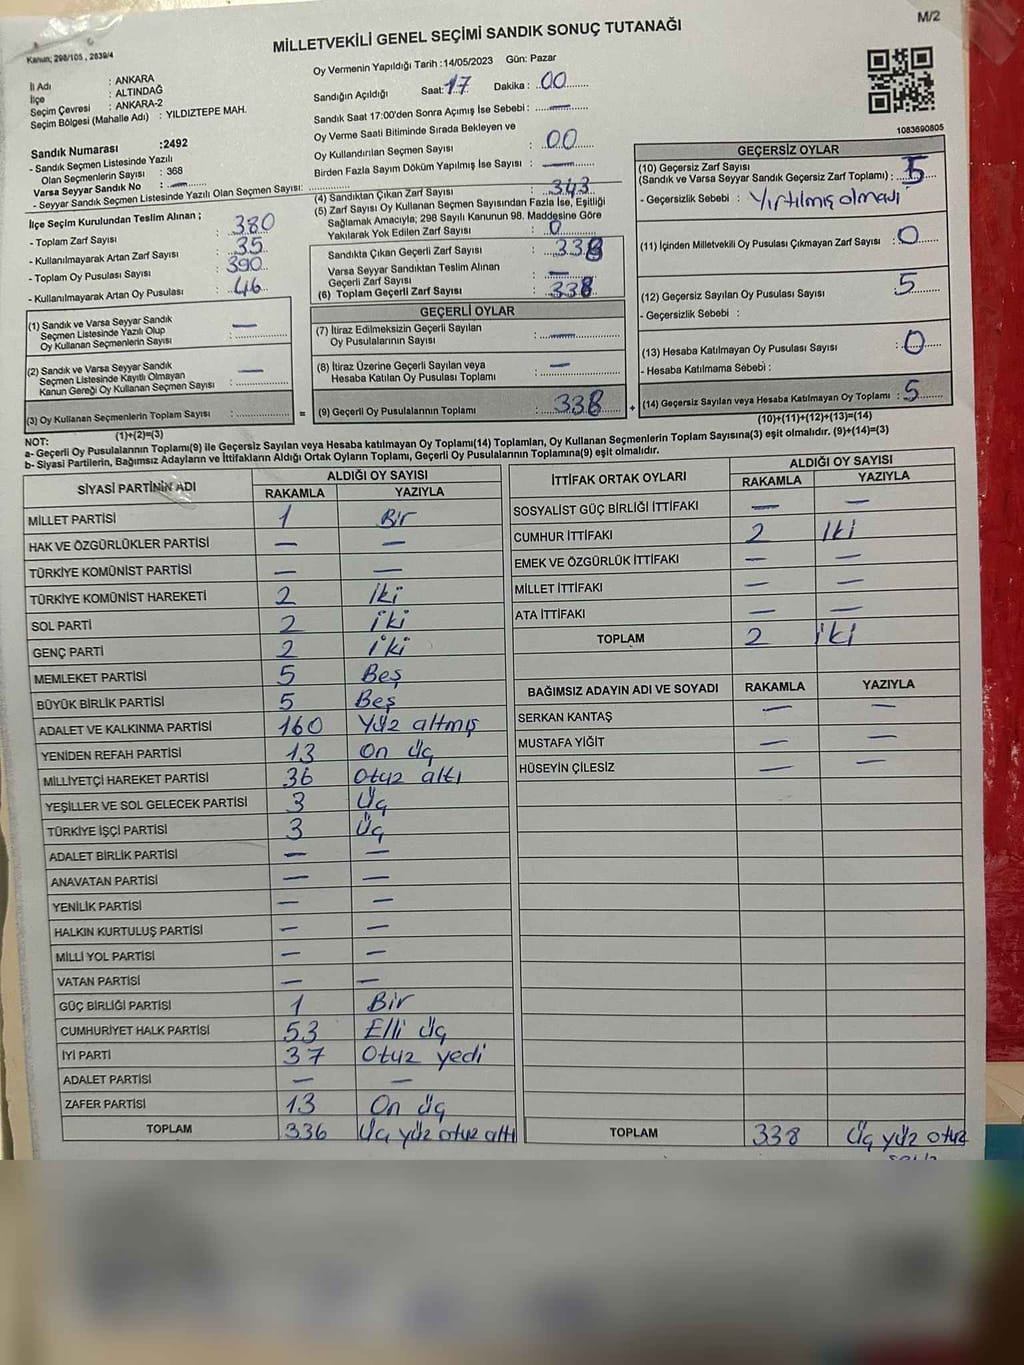 M/2
Kanun; 298/105 , 2839/4
MİLLETVEKİLİ GENEL SEÇİMİ SANDIK SONUÇ TUTANAĞI
İl Adı : ANKARA
İlçe : ALTINDAĞ
Seçim Çevresi : ANKARA-2
Seçim Bölgesi (Mahalle Adı) : YILDIZTEPE MAH.
Sandık Numarası :2492
- Sandık Seçmen Listesinde Yazılı
Olan Seçmenlerin Sayısı : 368
Varsa Seyyar Sandık No : —
- Seyyar Sandık Seçmen Listesinde Yazılı Olan Seçmen Sayısı:
İlçe Seçim Kurulundan Teslim Alınan ;
- Toplam Zarf Sayısı : 380
- Kullanılmayarak Artan Zarf Sayısı : 35
- Toplam Oy Pusulası Sayısı : 390
- Kullanılmayarak Artan Oy Pusulası : 46
(1) Sandık ve Varsa Seyyar Sandık
Seçmen Listesinde Yazılı Olup
Oy Kullanan Seçmenlerin Sayısı : —
(2) Sandık ve Varsa Seyyar Sandık
Seçmen Listesinde Kayıtlı Olmayan
Kanun Gereği Oy Kullanan Seçmen Sayısı : —
(3) Oy Kullanan Seçmenlerin Toplam Sayısı : =
(1)+(2)=(3)
Oy Vermenin Yapıldığı Tarih :14/05/2023 Gün: Pazar
Sandığın Açıldığı Saat: 17 Dakika : 00
Sandık Saat 17:00'den Sonra Açımış İse Sebebi : —
Oy Verme Saati Bitiminde Sırada Bekleyen ve
Oy Kullandırılan Seçmen Sayısı : 00
Birden Fazla Sayım Döküm Yapılmış İse Sayısı : —
(4) Sandıktan Çıkan Zarf Sayısı : 343
(5) Zarf Sayısı Oy Kullanan Seçmen Sayısından Fazla İse, Eşitliği
Sağlamak Amacıyla; 298 Sayılı Kanunun 98. Maddesine Göre
Yakılarak Yok Edilen Zarf Sayısı : 0
Sandıkta Çıkan Geçerli Zarf Sayısı : 338
Varsa Seyyar Sandıktan Teslim Alınan
Geçerli Zarf Sayısı : —
(6) Toplam Geçerli Zarf Sayısı : 338
GEÇERLİ OYLAR
(7) İtiraz Edilmeksizin Geçerli Sayılan
Oy Pusulalarının Sayısı : —
(8) İtiraz Üzerine Geçerli Sayılan veya
Hesaba Katılan Oy Pusulası Toplamı : —
(9) Geçerli Oy Pusulalarının Toplamı : 338 +
1083690805
GEÇERSİZ OYLAR
(10) Geçersiz Zarf Sayısı
(Sandık ve Varsa Seyyar Sandık Geçersiz Zarf Toplamı) : 5
- Geçersizlik Sebebi : Yırtılmış olmadı
(11) İçinden Milletvekili Oy Pusulası Çıkmayan Zarf Sayısı : 0
(12) Geçersiz Sayılan Oy Pusulası Sayısı : 5
- Geçersizlik Sebebi :
(13) Hesaba Katılmayan Oy Pusulası Sayısı : 0
- Hesaba Katılmama Sebebi :
(14) Geçersiz Sayılan veya Hesaba Katılmayan Oy Toplamı : 5
(10)+(11)+(12)+(13)=(14)
NOT:
a- Geçerli Oy Pusulalarının Toplamı(9) ile Geçersiz Sayılan veya Hesaba katılmayan Oy Toplamı(14) Toplamları, Oy Kullanan Seçmenlerin Toplam Sayısına(3) eşit olmalıdır. (9)+(14)=(3)
b- Siyasi Partilerin, Bağımsız Adayların ve İttifakların Aldığı Ortak Oyların Toplamı, Geçerli Oy Pusulalarının Toplamına(9) eşit olmalıdır.
SİYASİ PARTİNİN ADI ALDIĞI OY SAYISI
RAKAMLA YAZIYLA
MİLLET PARTİSİ 1 Bir
HAK VE ÖZGÜRLÜKLER PARTİSİ — —
TÜRKİYE KOMÜNİST PARTİSİ — —
TÜRKİYE KOMÜNİST HAREKETİ 2 İki
SOL PARTİ 2 İki
GENÇ PARTİ 2 İki
MEMLEKET PARTİSİ 5 Beş
BÜYÜK BİRLİK PARTİSİ 5 Beş
ADALET VE KALKINMA PARTİSİ 160 Yüz altmış
YENİDEN REFAH PARTİSİ 13 On üç
MİLLİYETÇİ HAREKET PARTİSİ 36 Otuz altı
YEŞİLLER VE SOL GELECEK PARTİSİ 3 Üç
TÜRKİYE İŞÇİ PARTİSİ 3 Üç
ADALET BİRLİK PARTİSİ — —
ANAVATAN PARTİSİ — —
YENİLİK PARTİSİ — —
HALKIN KURTULUŞ PARTİSİ — —
MİLLİ YOL PARTİSİ — —
VATAN PARTİSİ — —
GÜÇ BİRLİĞİ PARTİSİ 1 Bir
CUMHURİYET HALK PARTİSİ 53 Elli üç
İYİ PARTİ 37 Otuz yedi
ADALET PARTİSİ — —
ZAFER PARTİSİ 13 On üç
TOPLAM 336 Üç yüz otuz altı
İTTİFAK ORTAK OYLARI ALDIĞI OY SAYISI
RAKAMLA YAZIYLA
SOSYALİST GÜÇ BİRLİĞİ İTTİFAKI — —
CUMHUR İTTİFAKI 2 İki
EMEK VE ÖZGÜRLÜK İTTİFAKI — —
MİLLET İTTİFAKI — —
ATA İTTİFAKI — —
TOPLAM 2 İki
BAĞIMSIZ ADAYIN ADI VE SOYADI RAKAMLA YAZIYLA
SERKAN KANTAŞ — —
MUSTAFA YİĞİT — —
HÜSEYİN ÇİLESİZ — —
TOPLAM 338 Üç yüz otuz